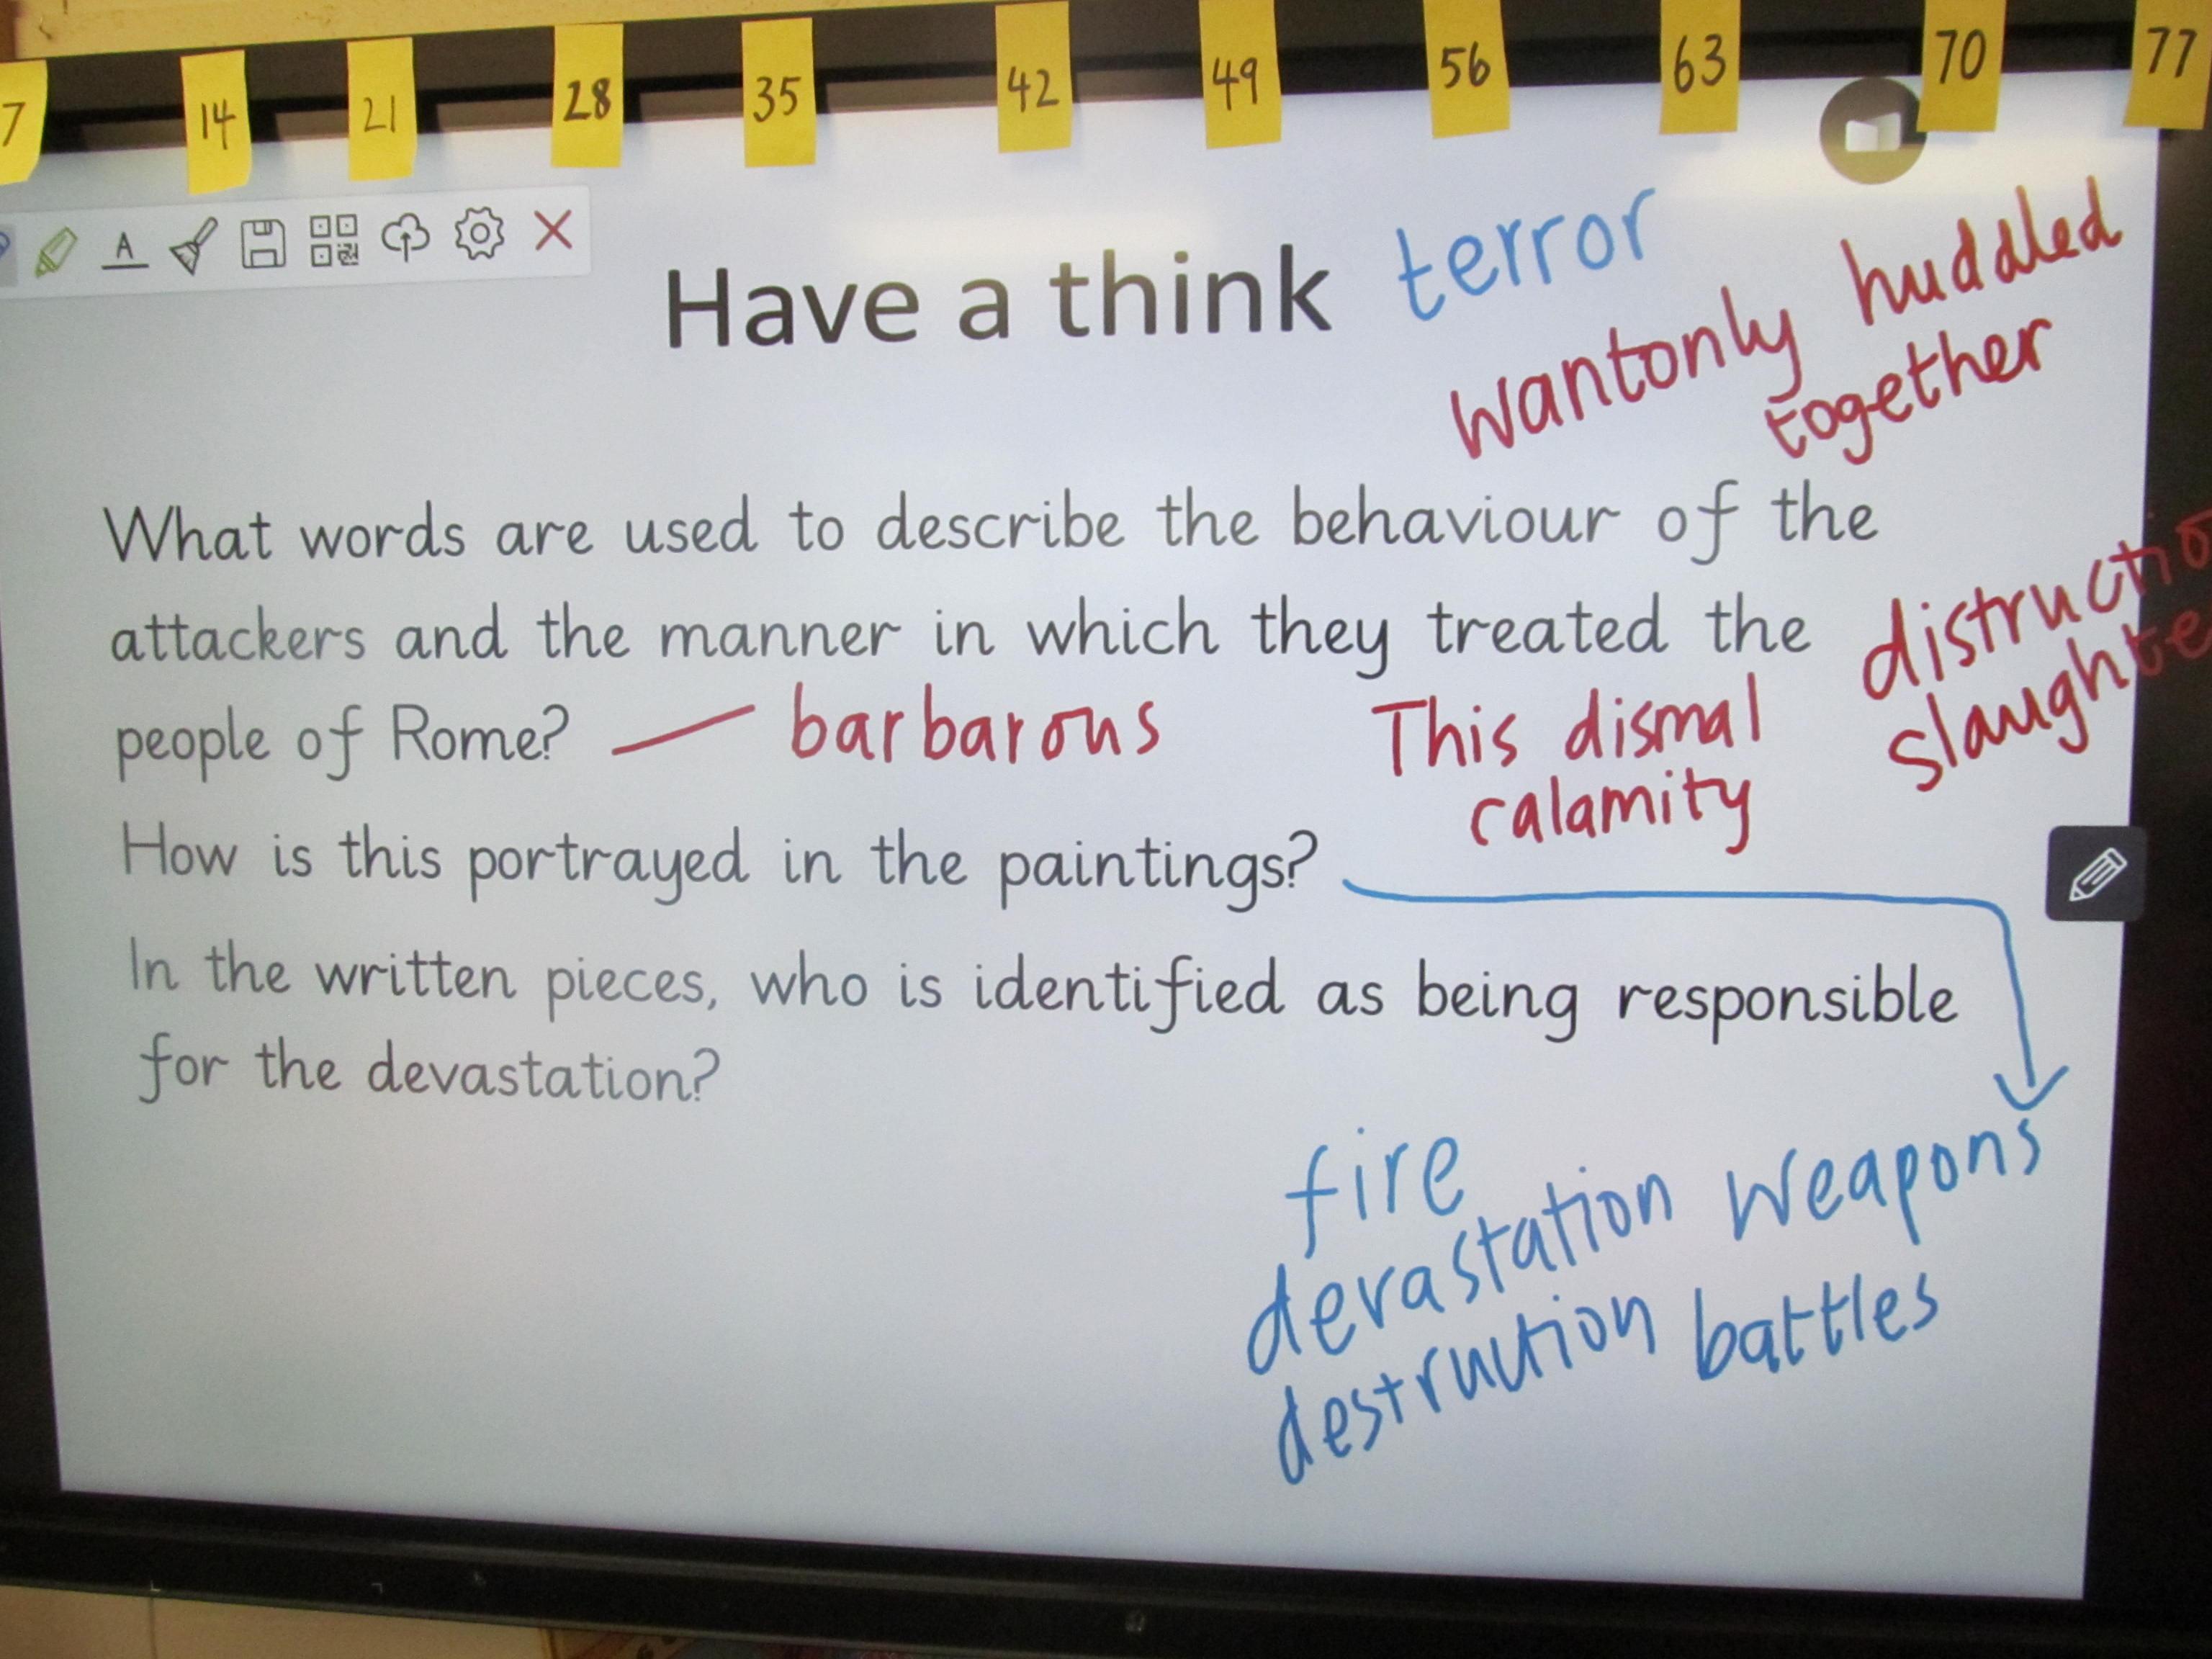 7 14 21 28 35 42 49 56 63 70 77
A
Have a think
terror
wantonly huddled
together
What words are used to describe the behaviour of the
attackers and the manner in which they treated the
people of Rome?
barbarous
This dismal
calamity
distructio
slaughte
How is this portrayed in the paintings?
In the written pieces, who is identified as being responsible
for the devastation?
fire
devastation weapons
destruction battles